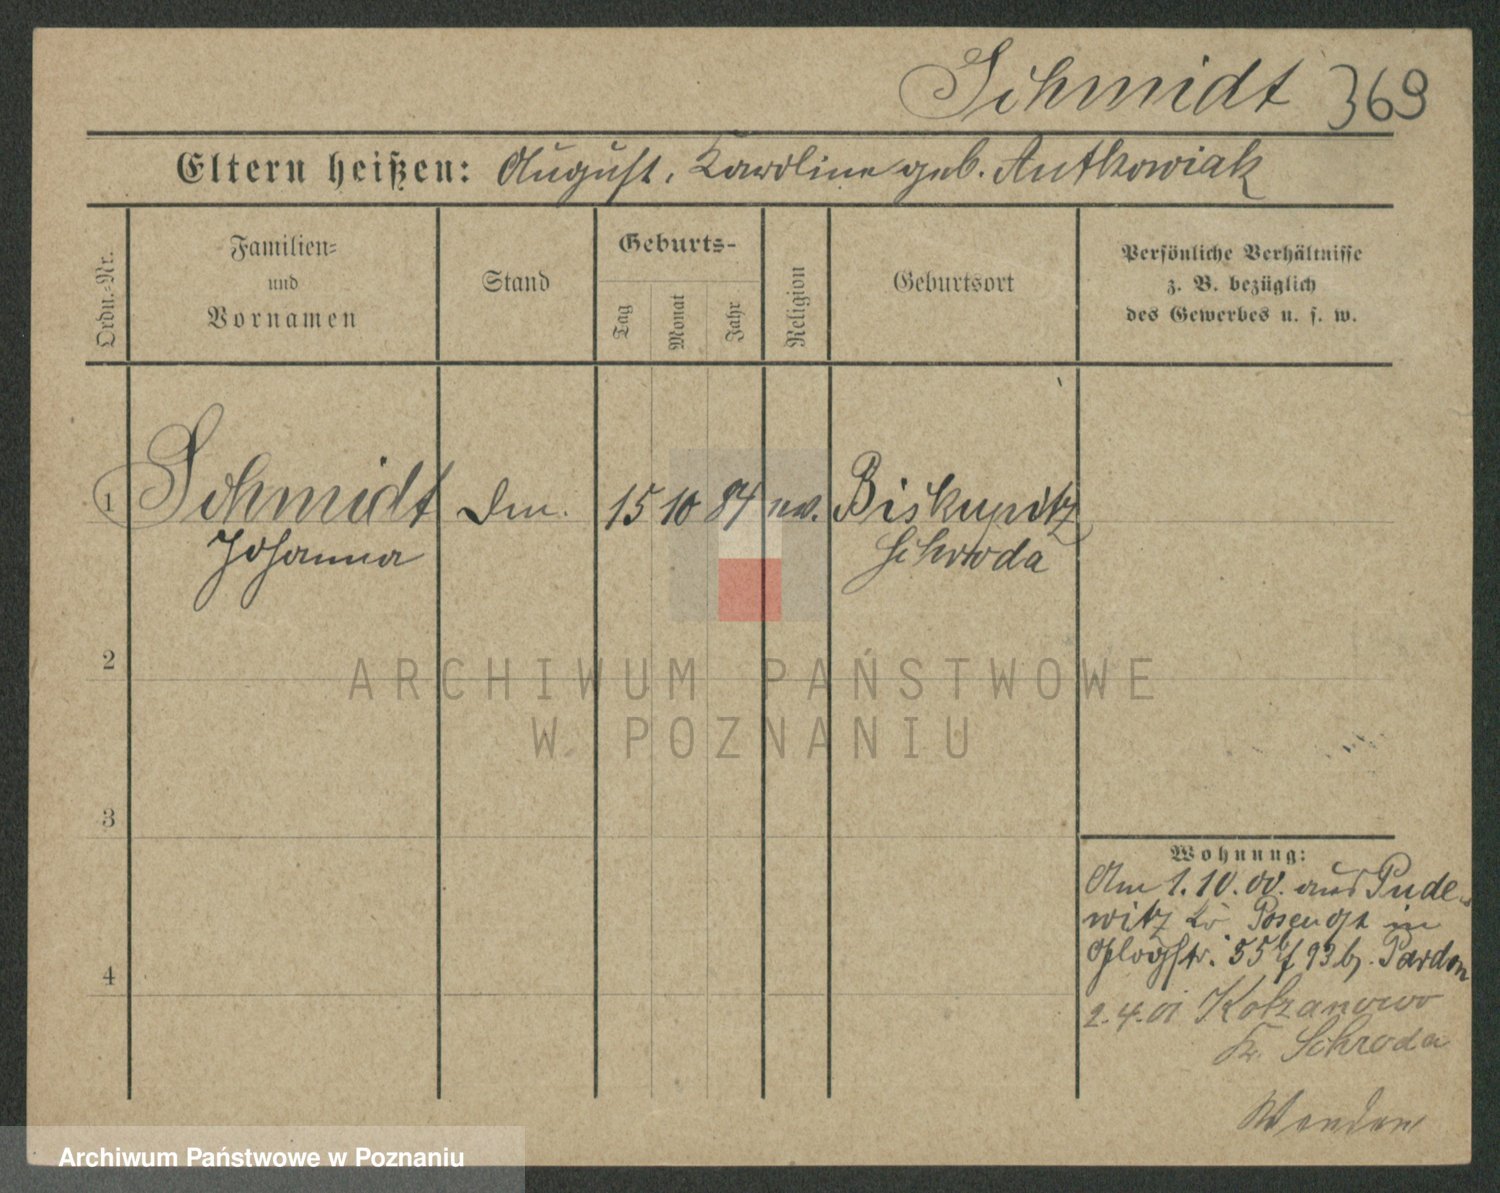 Schmidt 369
Eltern heißen: August, Karoline geb. Antkowiak
Ordn.-Nr.
Familien-
und
Vornamen
Stand
Geburts-
Tag
Monat
Jahr
Religion
Geburtsort
Persönliche Verhältnisse
z. B. bezüglich
des Gewerbes u. s. w.
1 Schmidt Dm. 15 10 84 ev. Biskupitz
Johanna Schroda
2
ARCHIWUM PAŃSTWOWE
W POZNANIU
3
4
Wohnung:
Am 1.10.00. aus Pude-
witz Kr. Posen Ost in
55 93 b.
2.4.01
Kr. Schroda
Wenden
Archiwum Państwowe w Poznaniu